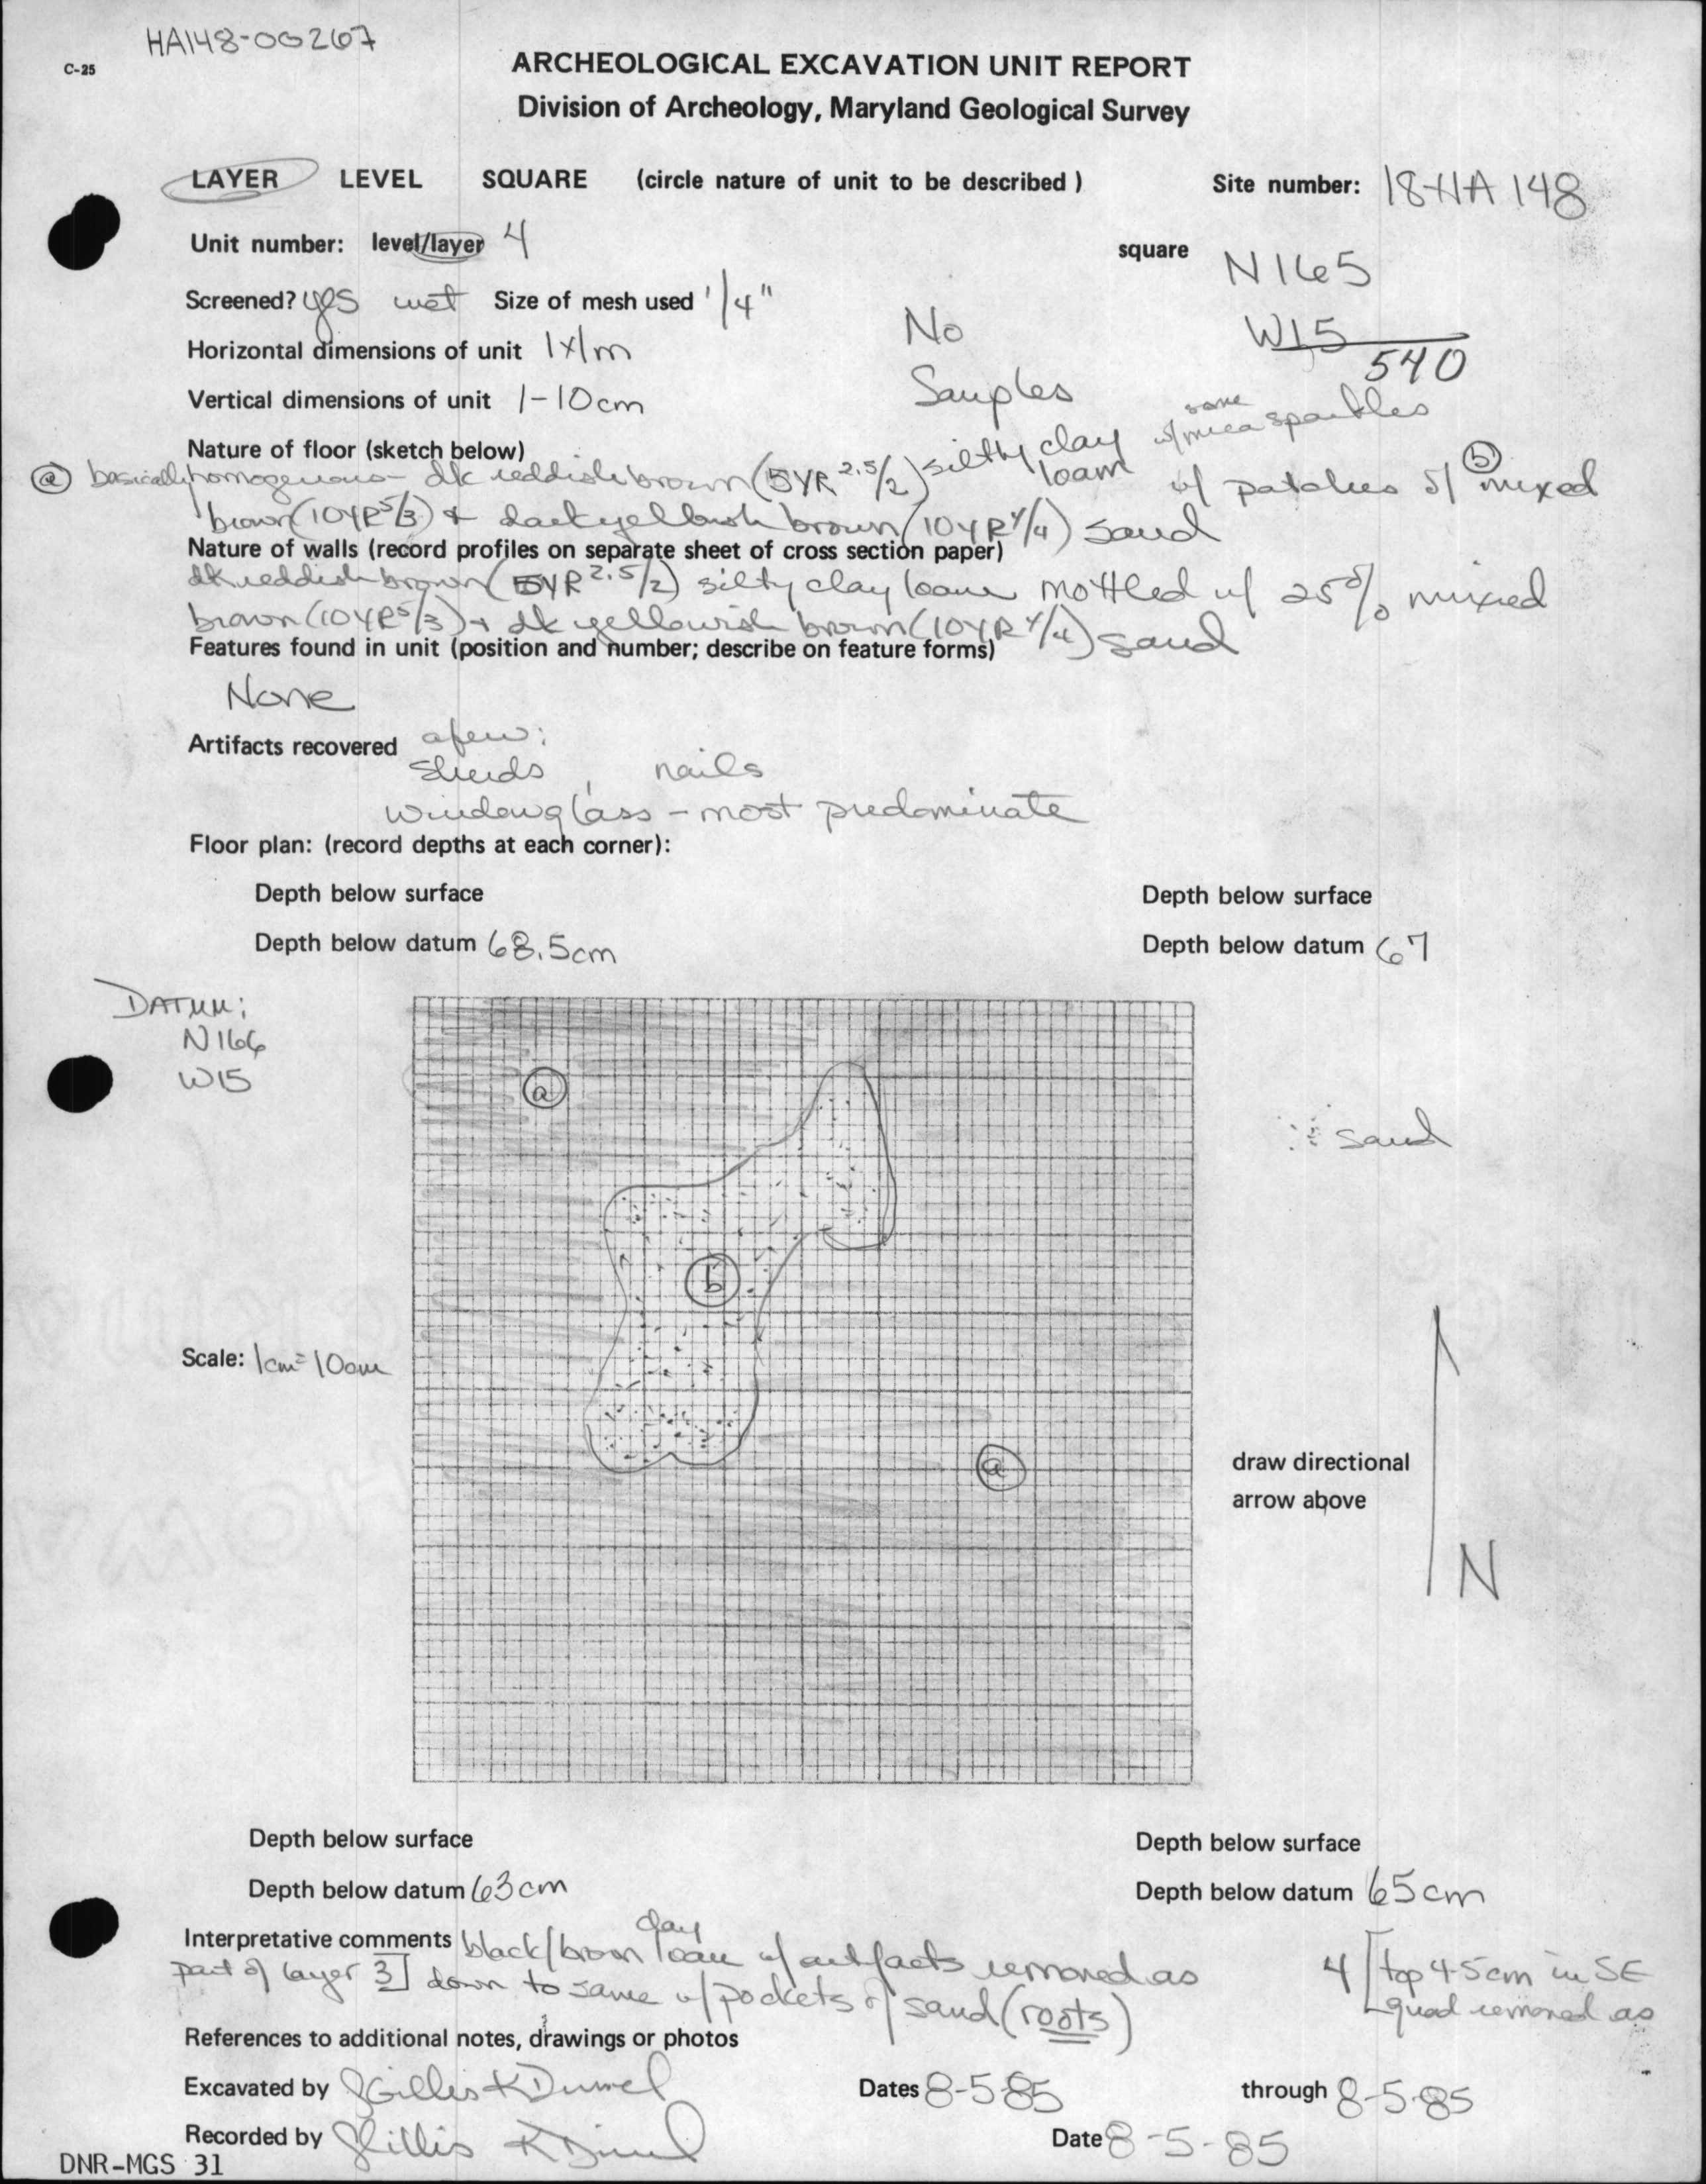 HA148-00267
C-25
ARCHEOLOGICAL EXCAVATION UNIT REPORT
Division of Archeology, Maryland Geological Survey
LAYER LEVEL SQUARE (circle nature of unit to be described ) Site number: 18HA 148
Unit number: level/layer 4 square N165
W15
540
Screened? yes wet Size of mesh used 1/4"
Horizontal dimensions of unit 1x1m
Vertical dimensions of unit 1-10cm
No
Samples
Nature of floor (sketch below)
(a) basically homogenous - dk reddish brown (5YR 2.5/2) silty clay loam w/ some mica sparkles w/ patches of (b) mixed
brown (10YR 5/3) + dark yellowish brown (10YR 4/4) sand
Nature of walls (record profiles on separate sheet of cross section paper)
dk reddish brown (5YR 2.5/2) silty clay loam mottled w/ 25% mixed
brown (10YR 5/3) + dk yellowish brown (10YR 4/4) sand
Features found in unit (position and number; describe on feature forms)
None
Artifacts recovered a few:
sherds, nails
window glass - most predominate
Floor plan: (record depths at each corner):
Depth below surface Depth below surface
Depth below datum 68.5cm Depth below datum 67
DATUM:
N166
W15
a
sand
b
Scale: 1cm=10cm
a
draw directional
arrow above
N
Depth below surface Depth below surface
Depth below datum 63cm Depth below datum 65cm
Interpretative comments black/brown clay loam w/ artifacts removed as
part of layer 3] down to same w/ pockets of sand (roots)
4 [top 4-5cm in SE
quad removed as
References to additional notes, drawings or photos
Excavated by JGillis + K Dumel Dates 8-5-85 through 8-5-85
Recorded by JGillis Date 8-5-85
DNR-MGS 31